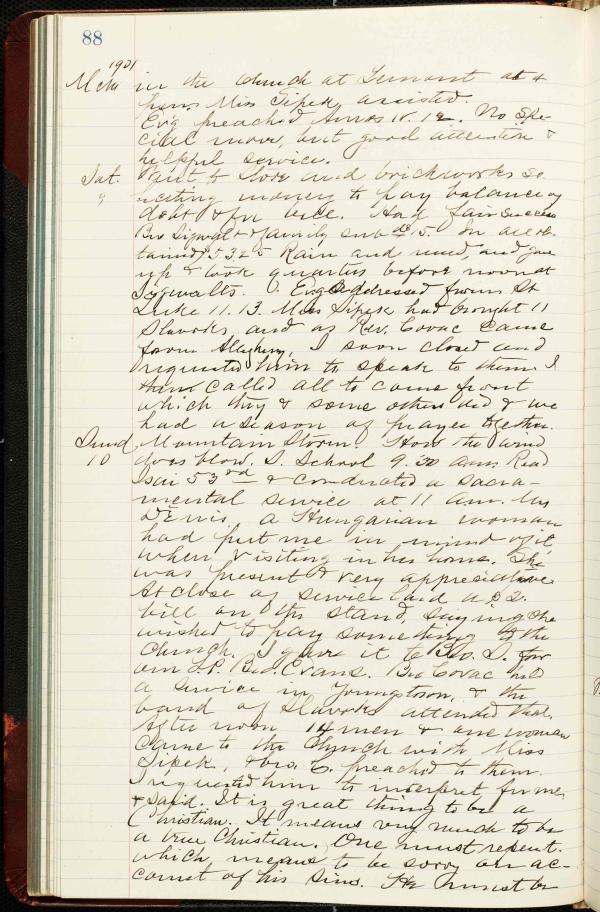 88
1901
Mch in the Church at Lemont at 4
p.m. Miss Sipek assisted.
Ev'g preached Amos 4. 12. No spe-
cial move, but good attention &
helpful service.
Sat. Went to Store and brickworks so-
9 liciting money to pay balance of
debt & fu Had fair success
Bro Sigwalt & family sub $15. In all ob-
tained $53.25 Rain and mud, and gave
up & took quarters before noon at
Sigwalts. Ev'g addressed from St
Luke 11. 13. Miss Sipek had brought 11
Slavaks, and as Rev. Covac came
from Allegheny, I soon closed and
requested him to speak to them. I
then called all to come front
which they & some others did & we
had a season of prayer together.
Sund. Mountain Storm. How the wind
10 does blow. S. School 9.30 a.m. Read
Isai 53rd & conducted a sacra-
mental service at 11 a.m. Mrs
Denis, a Hungarian woman
had put me in mind of it
when visiting in her home. She
was present & very appreciative
At close of service laid a $2.
bill on the stand, saying she
wished to pay something to the
Church. I gave it to Geo. S. for
our S.P. Bro. Evans. Bro Covac held
a service in Youngstown, & the
band of Slavaks attended that.
After noon 14 men & one woman
came to the Church with Miss
Sipek, & bro. C. preached to them.
I requested him to interpret for me
& said. It is great thing to be a
Christian. It means very much to be
a true Christian. One must repent.
which means to be sorry on ac-
count of his sins. He must be